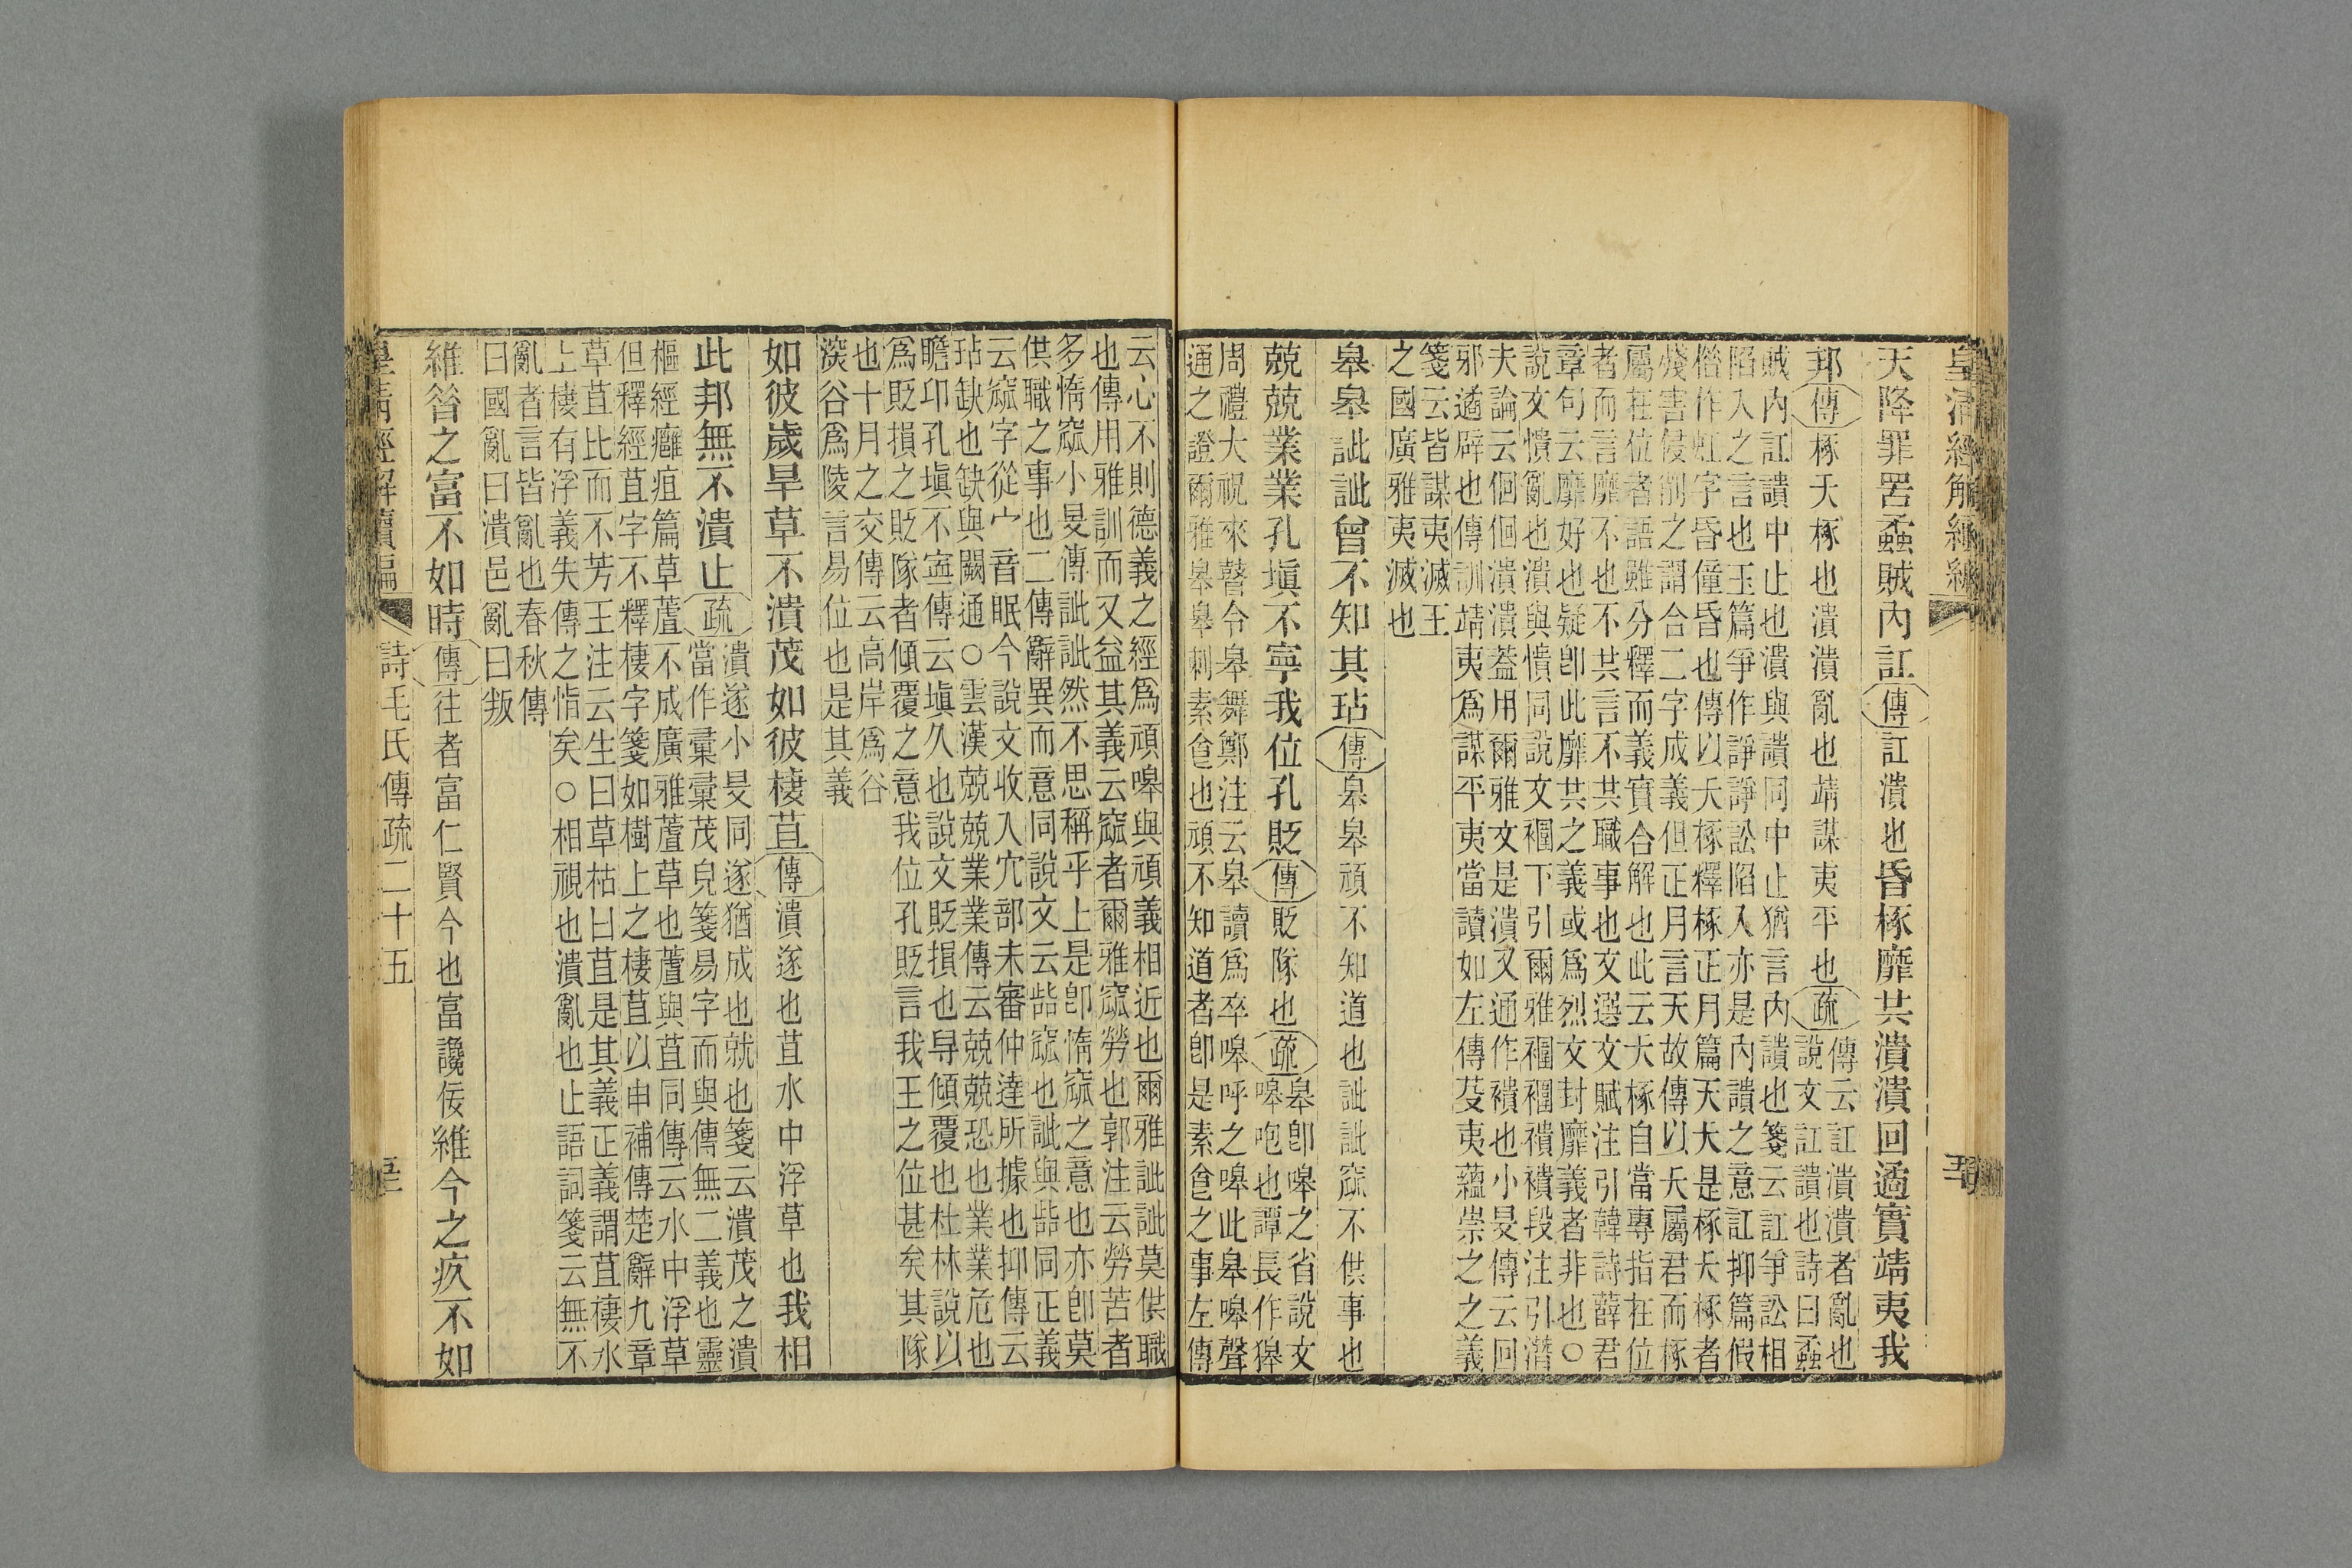 皇清經解續編
天降罪罟蟊賊內訌傳訌潰也昏椓靡共潰潰回遹實靖夷我
邦傳椓夭椓也潰潰亂也靖謀夷平也疏傳云訌潰潰者亂也
說文訌讃也詩曰蟊
賊內訌讃中止也潰與讃同中止猶言內讃也箋云訌爭訟相
陷入之言也玉篇爭作諍諍訟陷入亦是內讃之意訌抑篇假
俗作虹字昏僮昏也傳以夭椓釋椓正月篇天夭是椓夭椓者
殘害侵削之謂合二字成義但正月言天故傳以夭屬君而椓
屬在位者語雖分釋而義實合解也此云夭椓自當專指在位
者而言靡不也不共言不共職事也文選文賦注引韓詩薛君
章句云靡好也疑卽此靡共之義或爲烈文封靡義者非也○
說文憒亂也潰與憒同說文襴下引爾雅襴襴襀襀段注引潛
夫論云佪佪潰潰葢用爾雅文是潰又通作襀也小旻傳云回
邪遹辟也傳訓靖夷爲謀平夷當讀如左傳芟夷蘊崇之之義
箋云皆謀夷滅王
之國廣雅夷滅也
皋皋訿訿曾不知其玷傳皋皋頑不知道也訿訿窳不供事也
兢兢業業孔塡不寧我位孔貶傳貶隊也疏皋卽嘷之省說文
嘷咆也譚長作獋
周禮大祝來瞽令皋舞鄭注云皋讀爲卒嘷呼之嘷此皋嘷聲
通之證爾雅皋皋刺素食也頑不知道者卽是素食之事左傳
云心不則德義之經爲頑嘷與頑義相近也爾雅訿訿莫供職
也傳用雅訓而又益其義云窳者爾雅窳勞也郭注云勞苦者
多惰窳小旻傳訿訿然不思稱乎上是卽惰窳之意也亦卽莫
供職之事也二傳辭異而意同說文云呰窳也訿與呰同正義
云窳字從宀音眠今說文收入穴部未審仲達所據也抑傳云
玷缺也缺與闕通○雲漢兢兢業業傳云兢兢恐也業業危也
瞻卬孔塡不寍傳云塡久也說文貶損也㝵傾覆也杜林說以
爲貶損之貶隊者傾覆之意我位孔貶言我王之位甚矣其隊
也十月之交傳云高岸爲谷
深谷爲陵言易位也是其義
如彼歲旱草不潰茂如彼棲苴傳潰遂也苴水中浮草也我相
此邦無不潰止疏潰遂小旻同遂猶成也就也箋云潰茂之潰
當作彙彙茂皃箋易字而與傳無二義也靈
樞經癰疽篇草蘆不成廣雅蘆草也蘆與苴同傳云水中浮草
但釋經苴字不釋棲字箋如樹上之棲苴以申補傳楚辭九章
草苴比而不芳王注云生曰草枯曰苴是其義正義謂苴棲水
上棲有浮義失傳之恉矣○相視也潰亂也止語詞箋云無不
亂者言皆亂也春秋傳
曰國亂曰潰邑亂曰叛
維昝之富不如時傳往者富仁賢今也富讒佞維今之疚不如
皇淸經解續編
詩毛氏傳疏二十五